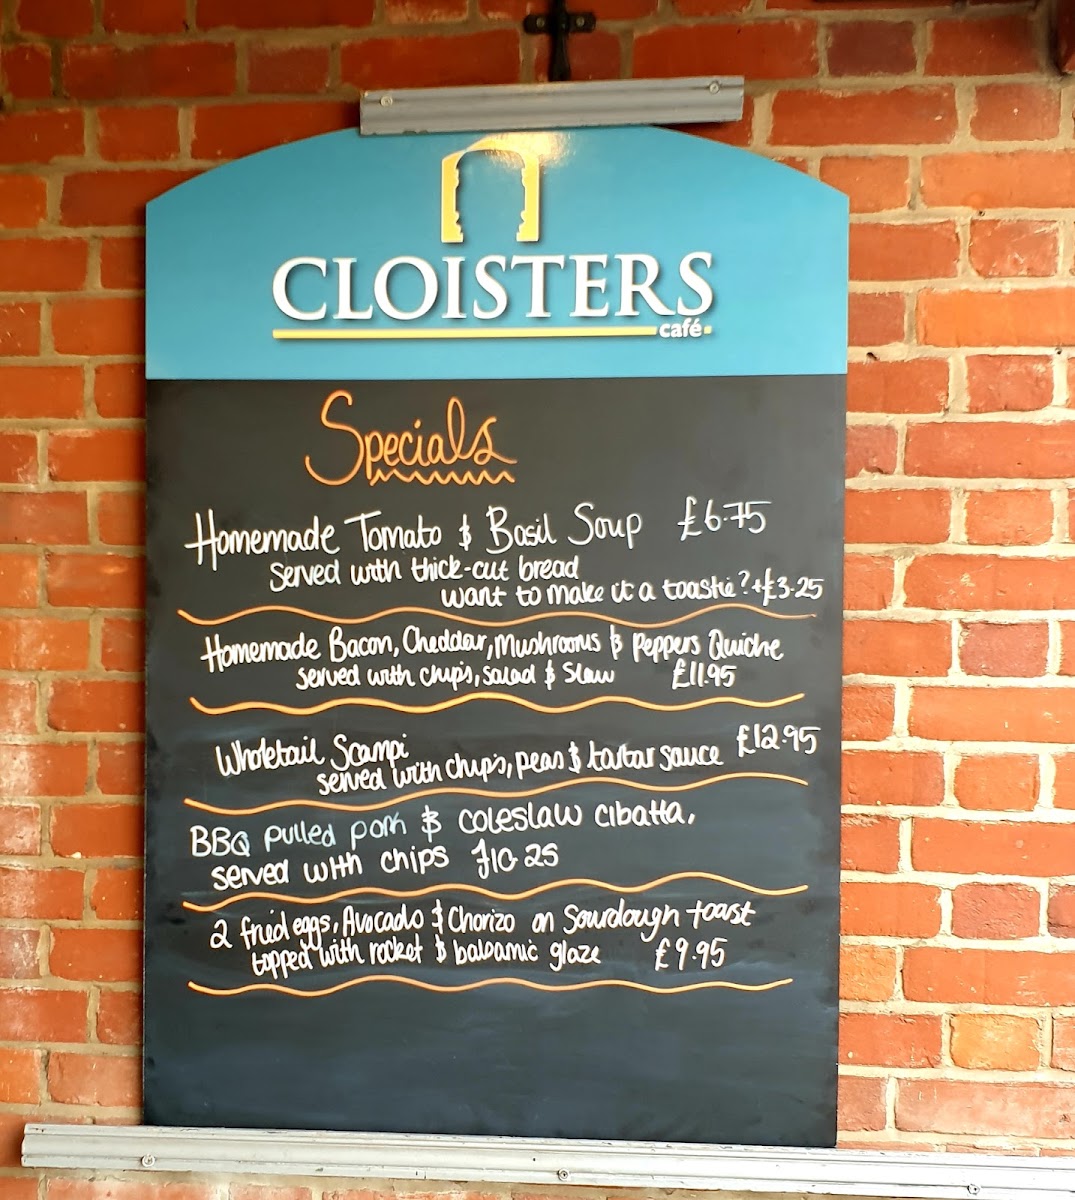 CLOISTERS
café
Specials
Homemade Tomato & Basil Soup £6.75
Served with thick-cut bread
want to make it a toastie? +£3.25
Homemade Bacon, Cheddar, Mushrooms & Peppers Quiche
served with chips, salad & Slaw £11.95
Wholetail Scampi £12.95
served with chips, peas & tartar sauce
BBQ pulled pork & coleslaw cibatta,
served with chips £10.25
2 fried eggs, Avocado & Chorizo on Sourdough toast
topped with rocket & balsamic glaze £9.95